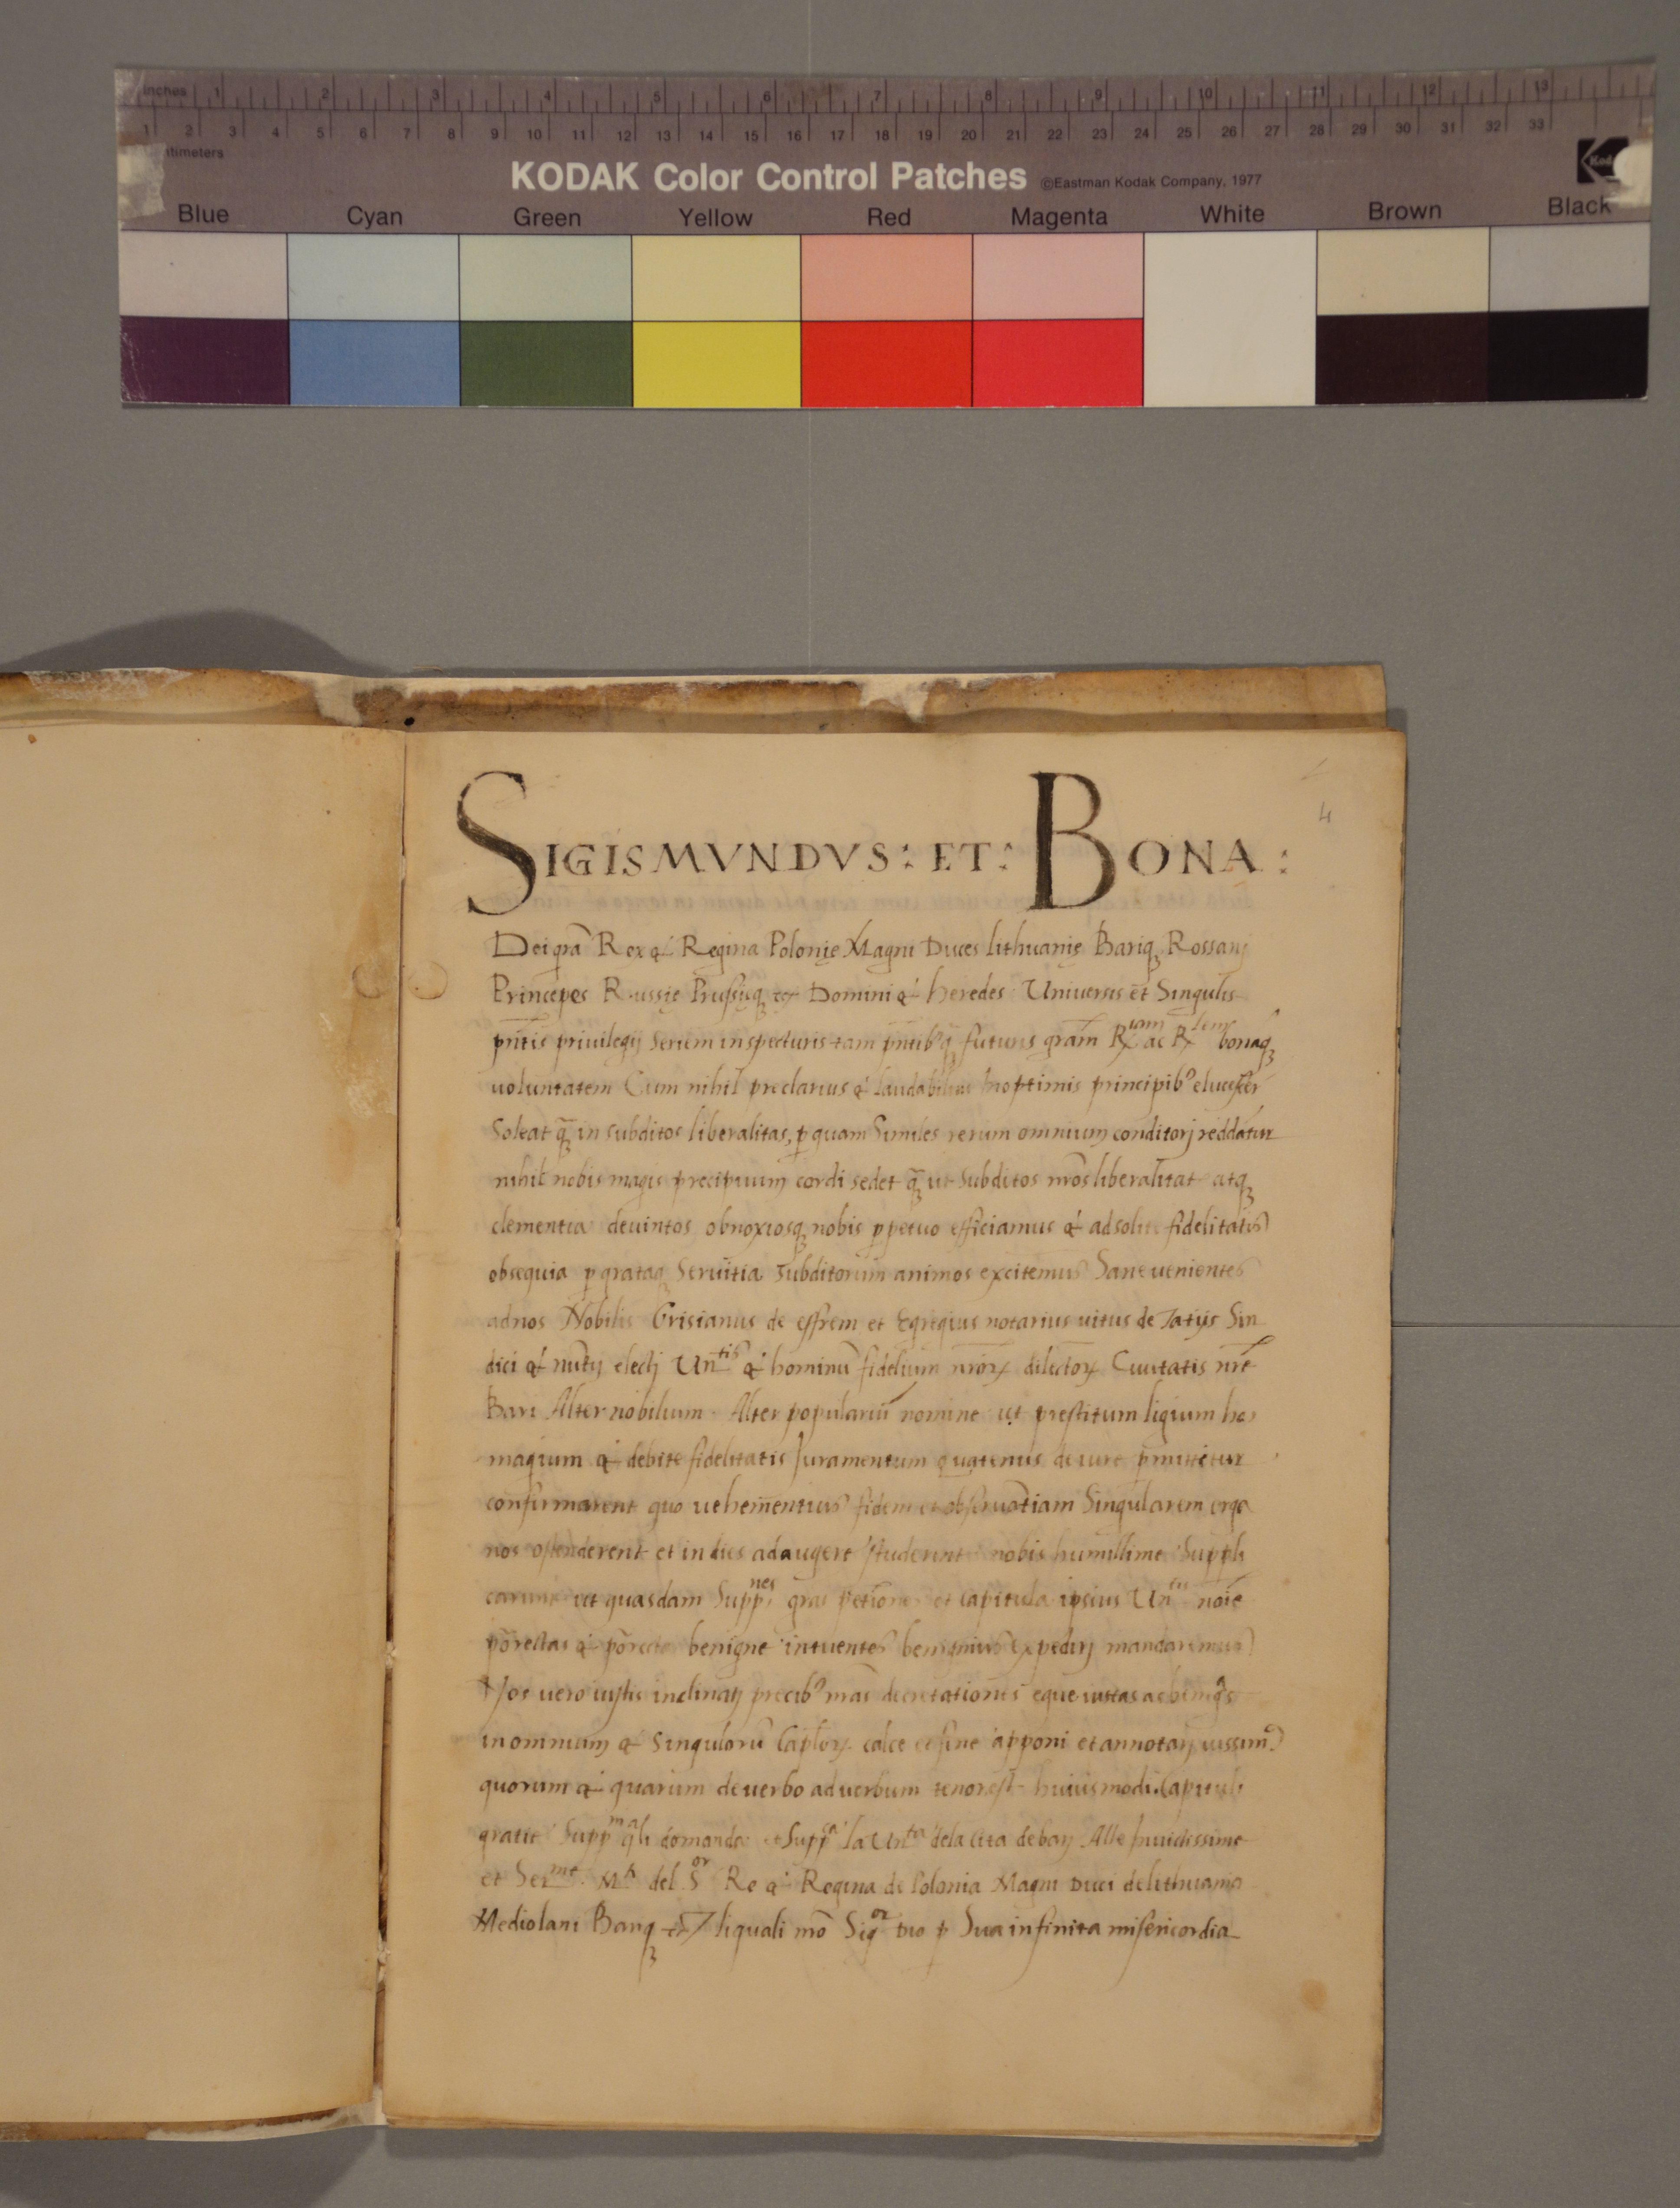 inches 1 2 3 4 5 6 7 8 9 10 11 12 13
1 2 3 4 5 6 7 8 9 10 11 12 13 14 15 16 17 18 19 20 21 22 23 24 25 26 27 28 29 30 31 32 33
timeters
KODAK Color Control Patches ©Eastman Kodak Company, 1977
Kod
Blue Cyan Green Yellow Red Magenta White Brown Black
4
SIGISMVNDVS: ET: BONA:
Dei grã Rex & Regina Polonię Magni Duces lithuanię Bariq Rossanj
Principes Russię Prussięq Domini & heredes Universis et Singulis
pñtis privilegij seriem inspecturis tam pñtib' futuris gram R ac R bonaq
voluntatem Cum nihil preclarius & laudabilius in optimis principib'
Soleat q̃ in subditos liberalitas, p quam Similes rerum omnium conditorj reddatur
nihil nobis magis precipuum cordi sedet q̃ ut subditos nros liberalitat atq
clementia deuintos obnoxiosq nobis ppetuo efficiamus & ad fidelitatis
obsequia p grataq Seruitia Subditorum animos excitemus Sane uenientes
ad nos Nobilis Grisianus de effrem et Egregius notarius uitus de Tatijs Sin
dici & nuntij electj Un^tis & hominũ fidelium dilector Ciuitatis nrẽ
Bari Alter nobilium Alter populariũ nomine ut prestitum ligium ho
magium & debite fidelitatis Juramentum quatenus de iure
confirmarent quo uehementius fidem et obseruatiam Singularem erga
nos ostenderent et in dies adaugere studerent nobis humillime Suppli
ut quasdam Supp^nes et capitula ipsius Un noĩe
benigne intuentes benignius expedirj mandaremus
Nos uero iustis inclinatj precib' decretationes eque iustas ac
in omnium & Singulorũ Caplor calce et fine apponi et annotarj iussim'
quorum & quarum de uerbo ad uerbum tenor est huiusmodi Capituli
gratie domanda et la Un^ta de la cita de barj Alle Inuictissime
et Ser^me M^ta del S^or Re & Regina de Polonia Magni Duci de lithuania
Mediolani Barij liquali Sig^or Dio p Sua infinita misericordia